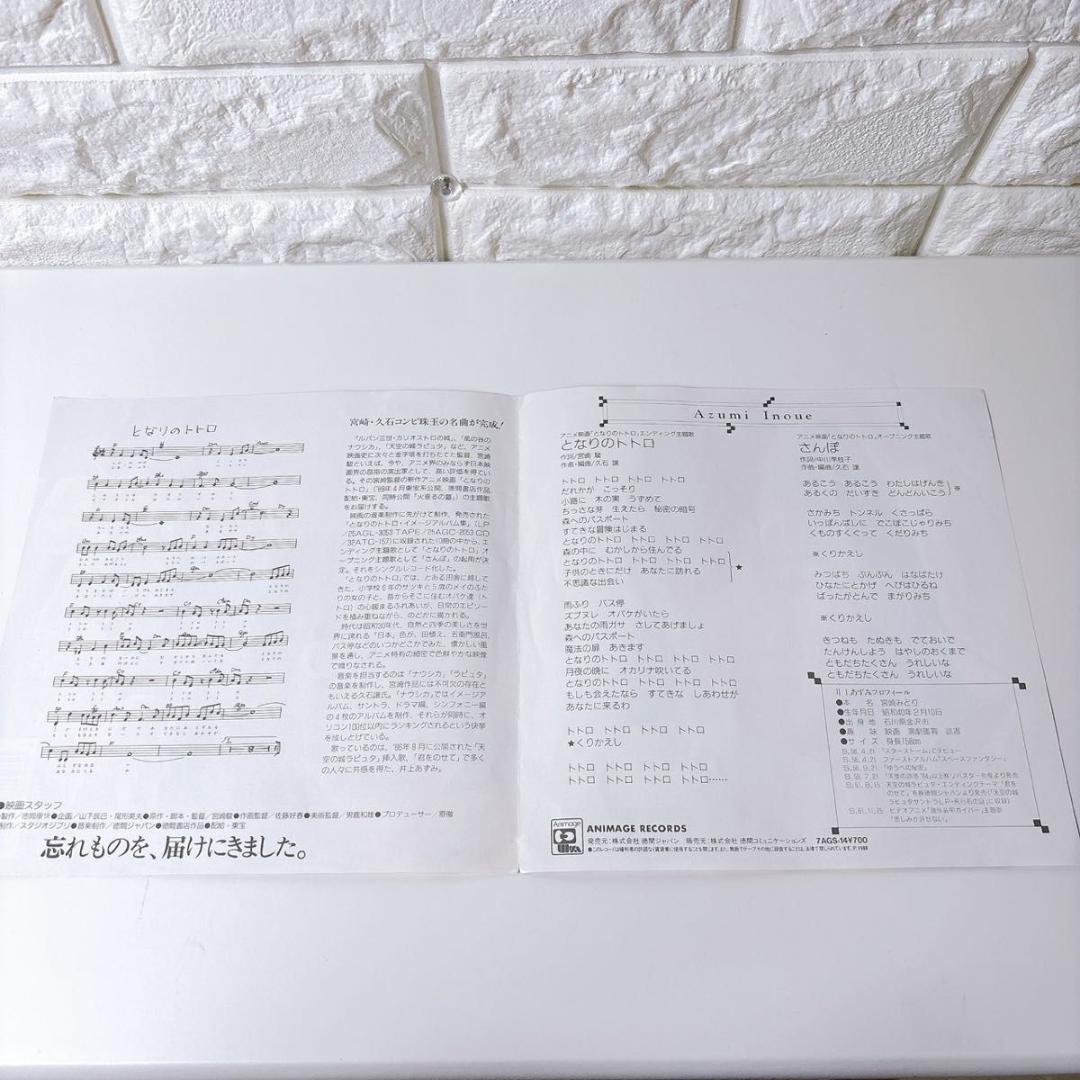 となりのトトロ
宮崎・久石コンビ珠玉の名曲が完成!
「ルパン三世・カリオストロの城」、「風の谷の
ナウシカ」、「天空の城ラピュタ」など、アニメ
映画史に次々と金字塔を打ちたてた監督、宮崎
駿といえば、今や、アニメ界のみならず日本映
画界の屈指の演出家として、高い評価を得てい
る。その宮崎監督の新作アニメ映画「となりの
トトロ」('88年4月東宝系公開、徳間書店作品、
配給・東宝、同時公開「火垂るの墓」)の主題歌
をお届けする。
映画の音楽制作に先がけて制作、発売された
「となりのトトロ・イメージアルバム集」(LP
/25AGL-3053 TAPE/25AGC-2053 CD
/32ATC-157)に収録された10曲の中から、エ
ンディング主題歌として「となりのトトロ」オ
ープニング主題歌として「さんぽ」の起用が決
定。それをシングルレコード化した。
「となりのトトロ」では、とある田舎に越して
きた、小学校6年のサツキと5歳のメイのふた
りの女の子と、昔からそこに住むオバケ達(ト
トロ)の心暖まるふれあいが、日常のエピソー
ドを積み重ねながら、のどかに描かれる。
時代は昭和30年代、自然と四季の美しさを世
界に誇れる「日本」色が、田植え、五衛門風呂、
バス停などのいつかどこかでみた、懐かしい風
景を通し、アニメ特有の細密で色鮮やかな映像
で織りなされる。
音楽を担当するのは「ナウシカ」「ラピュタ」
の音楽を制作し、宮崎作品には不可欠の存在と
もいえる久石譲氏。「ナウシカ」ではイメージア
ルバム、サントラ、ドラマ編、シンフォニー編
の4枚のアルバムを制作、それらが同時に、オ
リコン100位以内にランキングされるという快挙
を成しとげている。
歌っているのは、'86年8月に公開された「天
空の城ラピュタ」挿入歌、「君をのせて」で多く
の人々に共感を得た、井上あずみ。
●映画スタッフ
製作/徳間康快●企画/山下辰巳・尾形英夫●原作・脚本・監督/宮崎駿●作画監督/佐藤好春●美術監督/男鹿和雄●プロデューサー/原徹
制作/スタジオジブリ●音楽制作/徳間ジャパン●徳間書店作品●配給・東宝
忘れものを、届けにきました。
Azumi Inoue
アニメ映画「となりのトトロ」エンディング主題歌
となりのトトロ
作詞/宮崎 駿
作曲・編曲/久石 譲
トトロ トトロ トトロ トトロ
だれかが こっそり
小路に 木の実 うずめて
ちっさな芽 生えたら 秘密の暗号
森へのパスポート
すてきな冒険はじまる
となりのトトロ トトロ トトロ トトロ
森の中に むかしから住んでる
となりのトトロ トトロ トトロ トトロ
子供のときにだけ あなたに訪れる
不思議な出会い
★
雨ふり バス停
ズブヌレ オバケがいたら
あなたの雨ガサ さしてあげましょ
森へのパスポート
魔法の扉 あきます
となりのトトロ トトロ トトロ トトロ
月夜の晩に オカリナ吹いてる
となりのトトロ トトロ トトロ トトロ
もしも会えたなら すてきな しあわせが
あなたに来るわ
トトロ トトロ トトロ トトロ
★くりかえし
トトロ トトロ トトロ トトロ
トトロ トトロ トトロ トトロ……
アニメ映画「となりのトトロ」オープニング主題歌
さんぽ
作詞/中川李枝子
作曲・編曲/久石 譲
あるこう あるこう わたしはげんき
あるくの だいすき どんどんいこう
※
さかみち トンネル くさっぱら
いっぽんばしに でこぼこじゃりみち
くものすくぐって くだりみち
※くりかえし
みつばち ぶんぶん はなばたけ
ひなたにとかげ へびはひるね
ばったがとんで まがりみち
※くりかえし
きつねも たぬきも でておいで
たんけんしよう はやしのおくまで
ともだちたくさん うれしいな
ともだちたくさん うれしいな
井上あずみプロフィール
●本 名 宮崎みどり
●生年月日 昭和40年2月10日
●出 身 地 石川県金沢市
●趣 味 映画 演劇鑑賞 読書
●サ イ ズ 身長158cm
Animage
ANIMAGE RECORDS
発売元:株式会社 徳間ジャパン 販売元:株式会社 徳間コミュニケーションズ 7AGS-14¥700